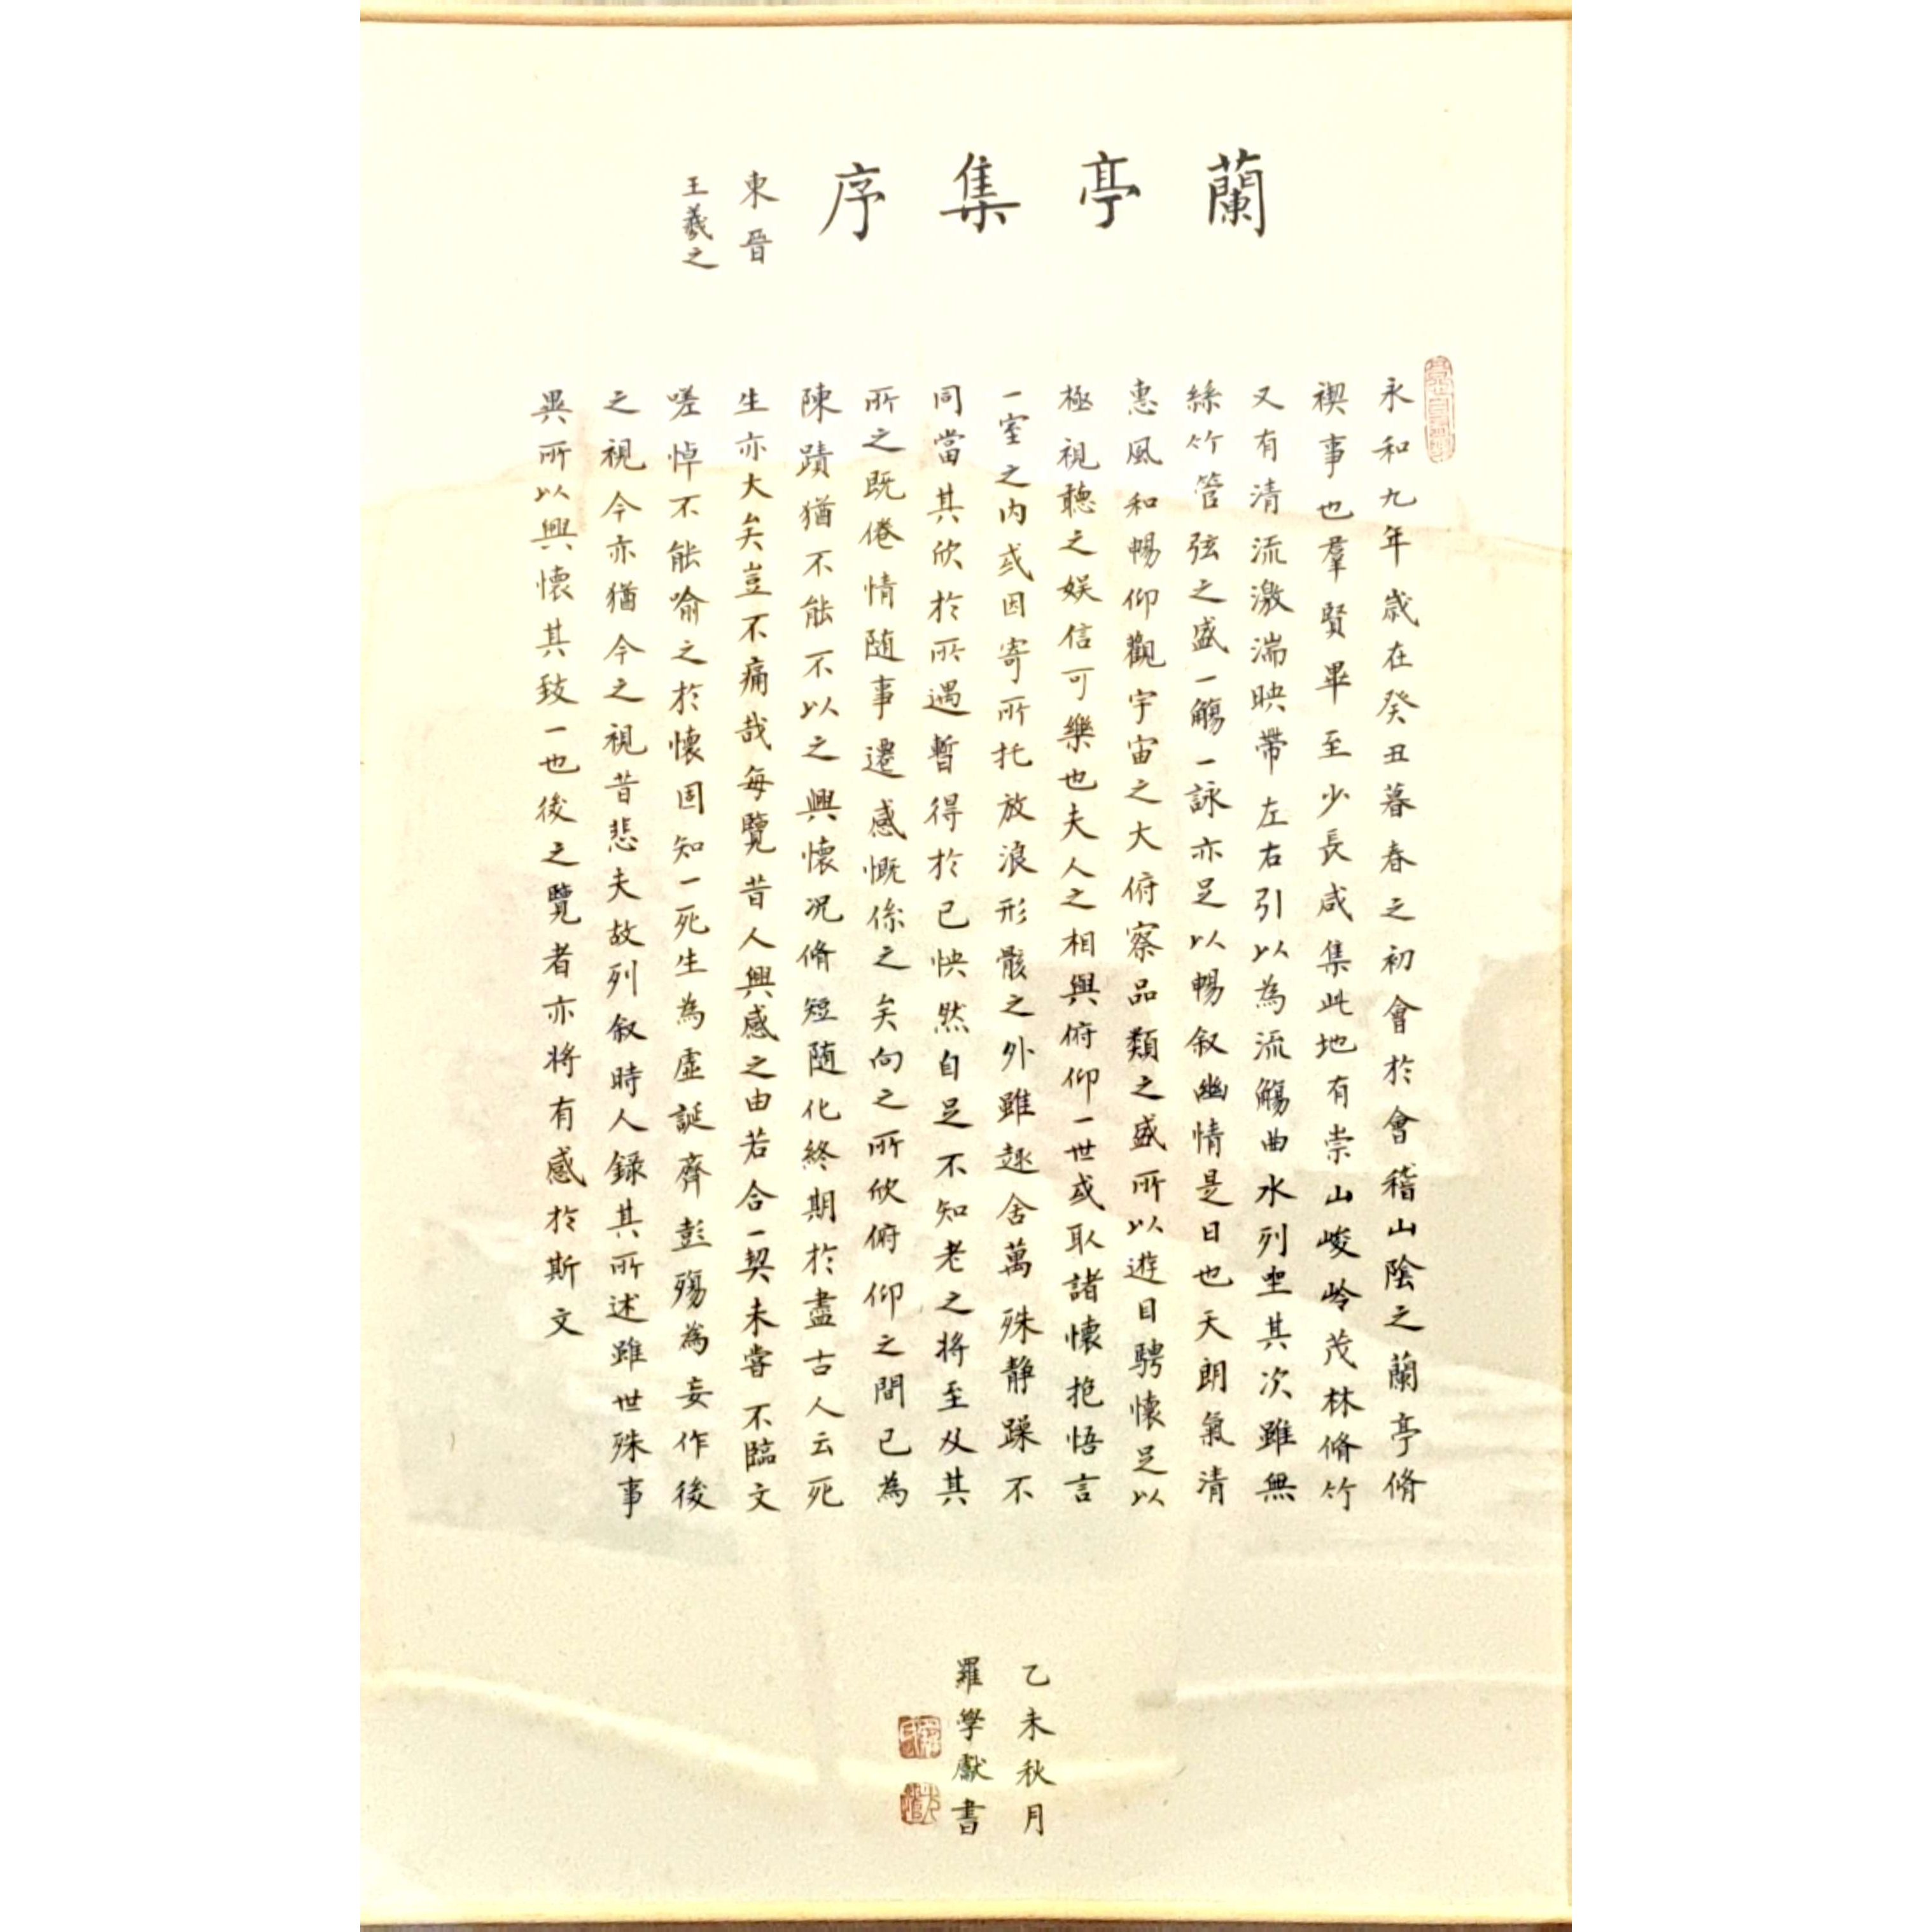 蘭亭集序
東晉
王羲之
永和九年歲在癸丑暮春之初會於會稽山陰之蘭亭脩
禊事也羣賢畢至少長咸集此地有崇山峻岭茂林脩竹
又有清流激湍映帶左右引以為流觴曲水列坐其次雖無
絲竹管弦之盛一觴一詠亦足以暢叙幽情是日也天朗氣清
惠風和暢仰觀宇宙之大俯察品類之盛所以遊目騁懷足以
極視聽之娛信可樂也夫人之相與俯仰一世或取諸懷抱悟言
一室之内或因寄所托放浪形骸之外雖趣舍萬殊静躁不
同當其欣於所遇暫得於己怏然自足不知老之將至及其
所之既倦情随事遷感慨係之矣向之所欣俯仰之間已為
陳蹟猶不能不以之興懷况脩短随化終期於盡古人云死
生亦大矣豈不痛哉每覽昔人興感之由若合一契未嘗不臨文
嗟悼不能喻之於懷固知一死生為虛誕齊彭殤為妄作後
之視今亦猶今之視昔悲夫故列叙時人録其所述雖世殊事
異所以興懷其致一也後之覽者亦將有感於斯文
乙未秋月
羅學獻書